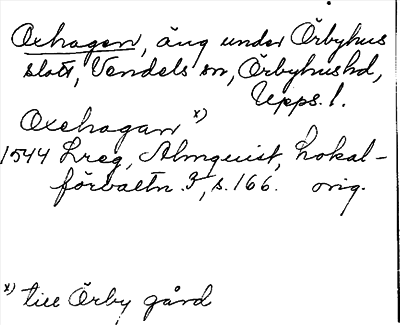 Oxhagen, äng under Örbyhus
slott, Vendels sn, Örbyhus hd,
Upps. l.
Oxehagan x)
1544 Lreg, Almquist, Lokal-
förvaltn. 3, s. 166. orig.
x) till Örby gård